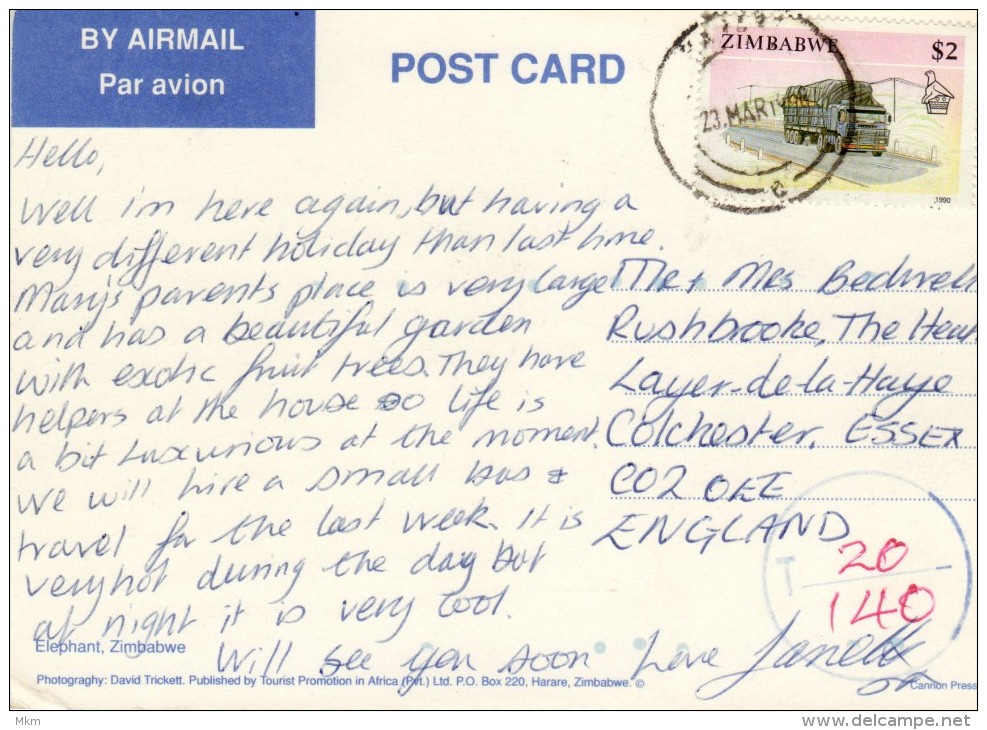 BY AIRMAIL
Par avion
POST CARD
ZIMBABWE
$2
23.MAR
1990
Hello,
Well i'm here again, but having a
very different holiday than last time.
Mary's parents place is very large
and has a beautiful garden
with exotic fruit trees. They have
helpers at the house so life is
a bit Luxurious at the moment.
We will hire a small bus &
travel for the last week. It is
very hot during the day but
at night it is very cool.
Will see you soon Love Janelle
Mr + Mrs Bedwell
Rushbrooke, The Heath
Layer-de-la-Haye
Colchester, ESSEX
CO2 OEE
ENGLAND
T
20
140
Elephant, Zimbabwe
Photography: David Trickett. Published by Tourist Promotion in Africa (Pvt.) Ltd. P.O. Box 220, Harare, Zimbabwe. ©
Cannon Press
Mkm
delcampe.net